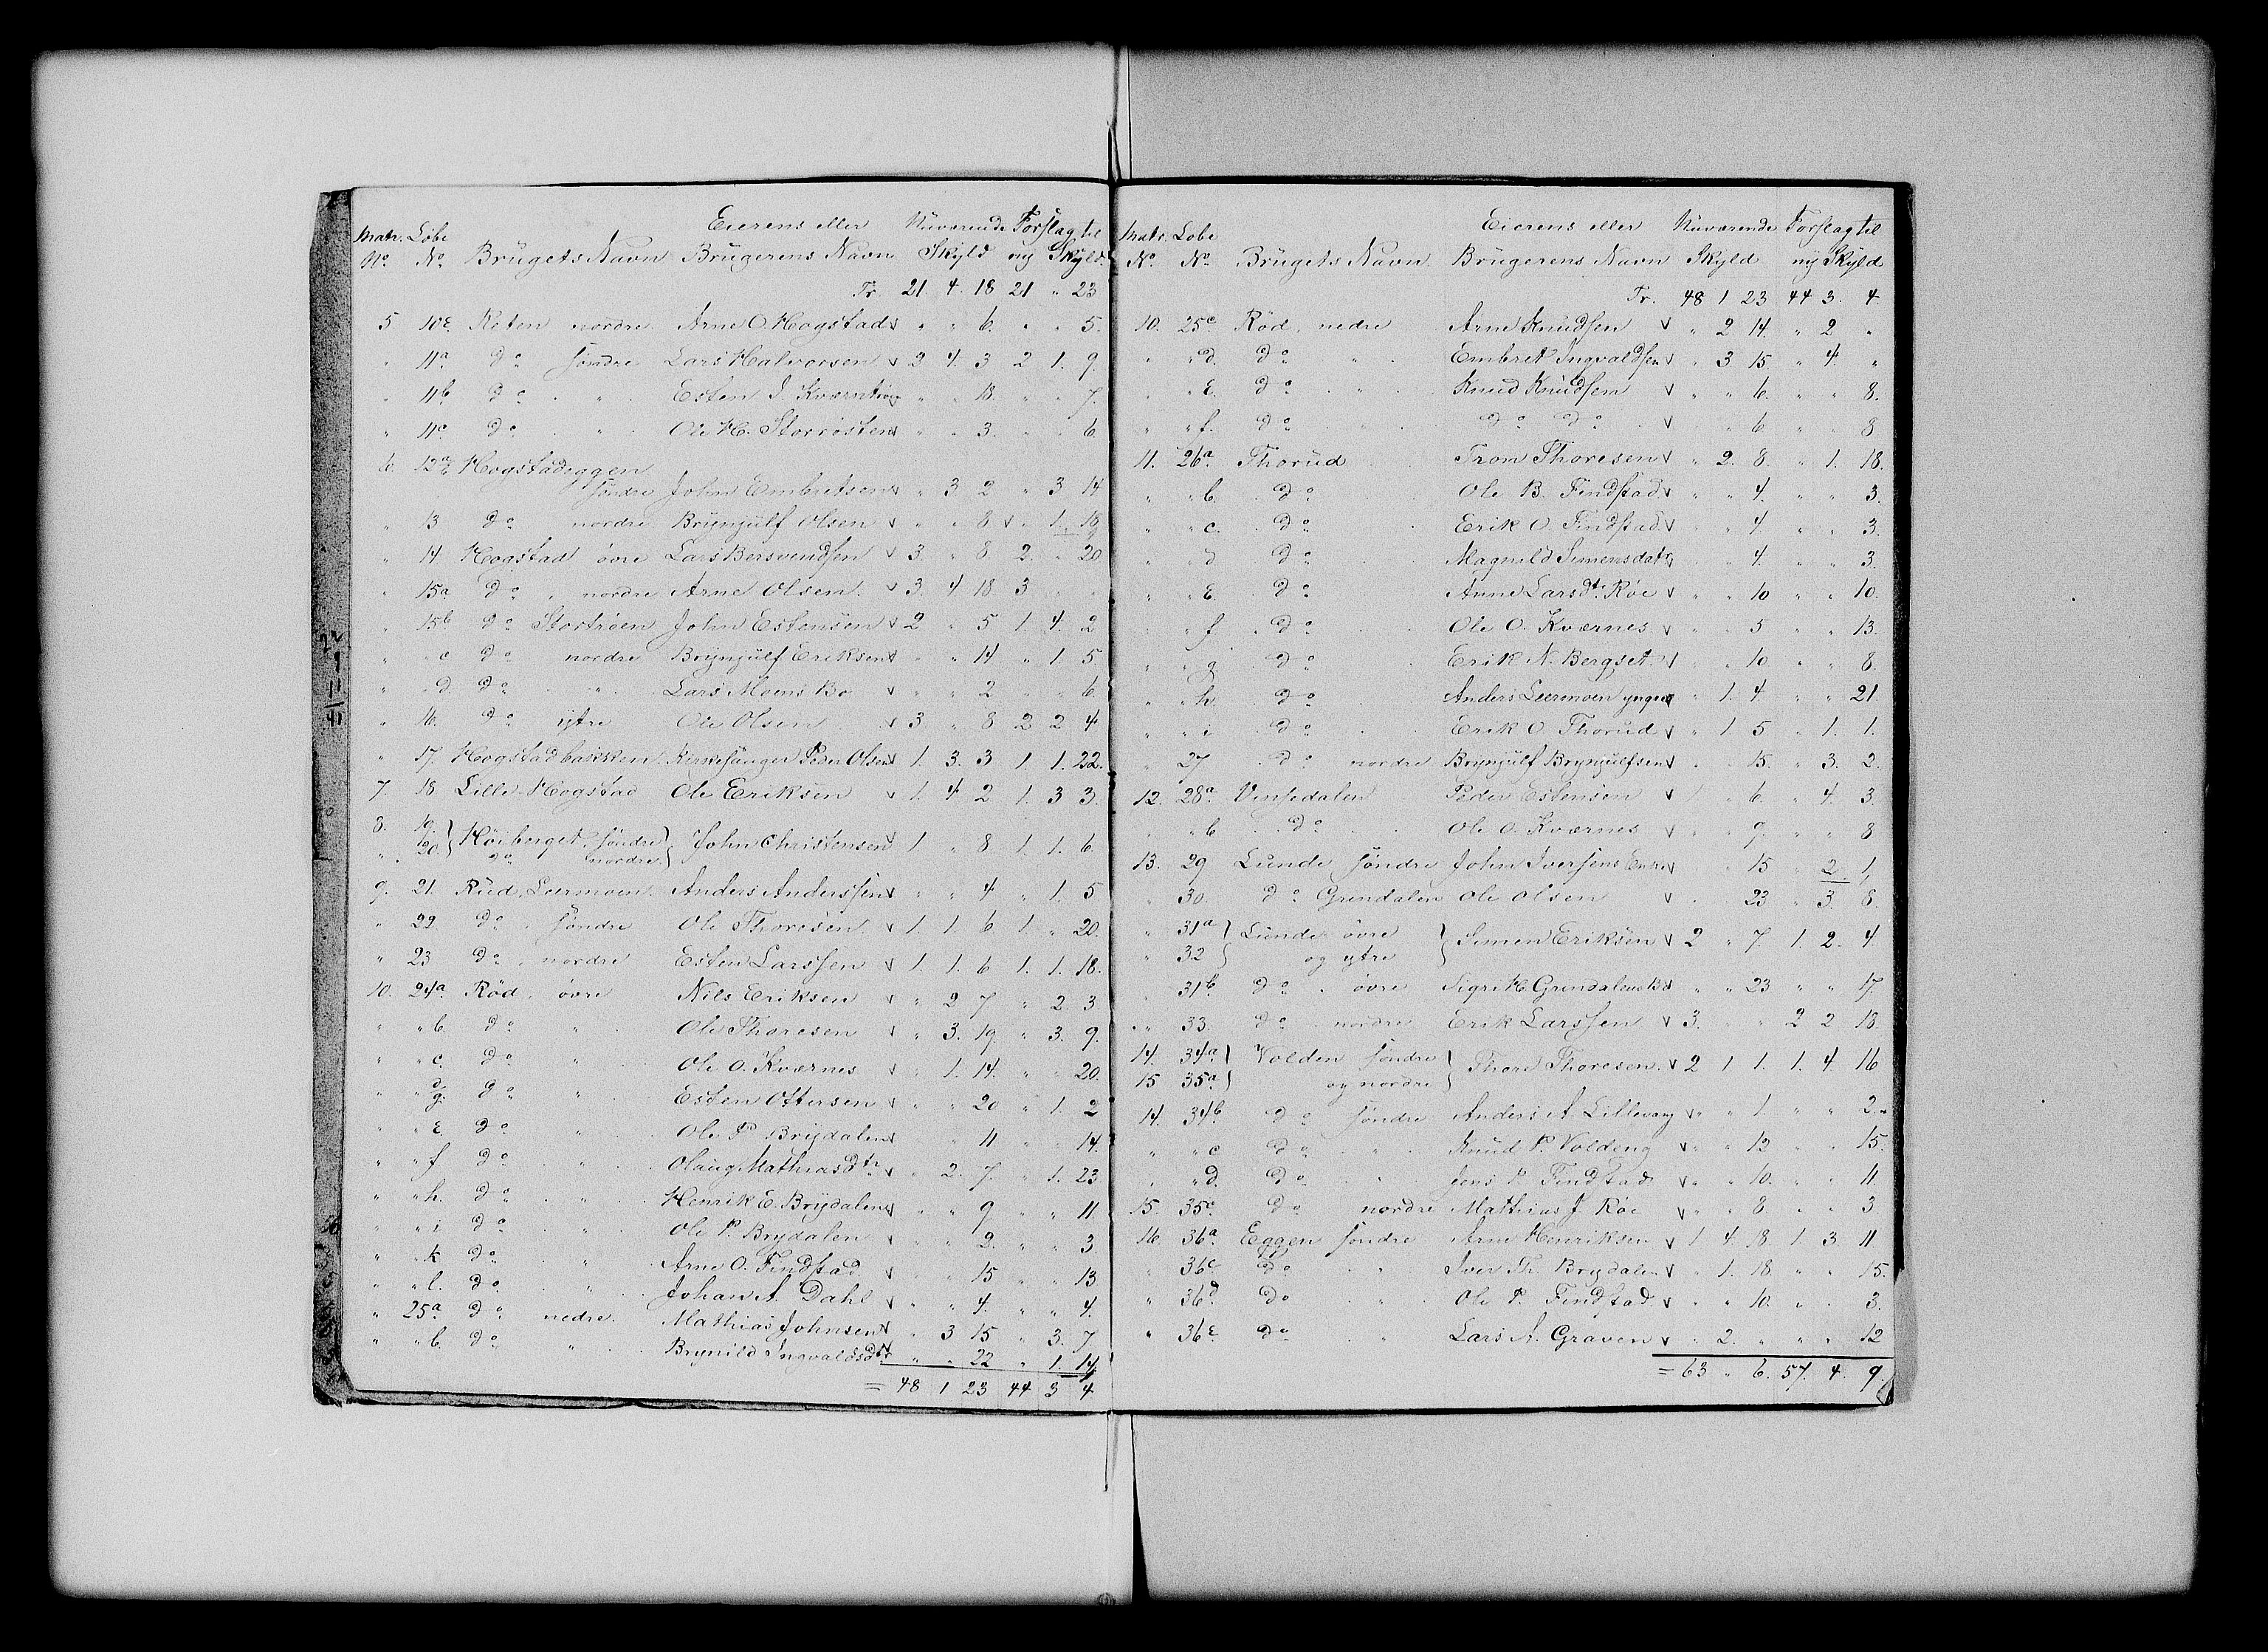 Matr. Löbe Eierens eller Nuværende Forslag til
No. No. Brugets Navn Brugerens Navn Skyld ny Skyld.
Tr. 21. 4. 18 21 " 23
5 10e. Roten nordre Arne O. Hogstad v " " 6. " " 5.
" 11a do söndre Lars Halvorsen v 2 4. 3 2 1. 9.
" 11b do " Esten J. v " " 18. " " 7.
" 11c do " Ole H. Storrösten v " " 3. " " 6.
6. 12a Hogstadeggen
söndre John Embretsen v " 3 2 " 3 14
" 13 do nordre Brynjulf Olsen v " " 8 v " 1. 18
" 14 Hogstad övre Lars Bersvendsen v 3 " 8. 2. " 20
" 15a do " nordre Arne Olsen. v 3. 4 18. 3 " "
" 15b do Stortröen John Estensen v 2 " 5 1 4. 2
" " c do nordre Brynjulf Eriksen v " " 14 " 1. 5
" " d. do " Lars Moens Bo v " " 2 " " 6.
" 16. do ytre Ole Olsen v 3 " 8 2 2 4
" 17. Hogstadbakken Kirkesanger Peder Olsen v 1. 3. 3 1. 1. 22.
7 18. Lille-Hogstad Ole Eriksen v 1. 4 2 1. 3 3.
8. 19
" 20. } Höiberget, söndre do nordre } John Christensen v 1 " 8. 1 1. 6.
9. 21. Rud, Leermoen. Anders Anderssen v " " 4 " 1. 5
" 22 do " söndre Ole Thoresen v 1. 1. 6. 1. " 20.
" 23 do " nordre Esten Larssen v 1. 1. 6 1. 1. 18.
10. 24a. Röd, övre Nils Eriksen v " 2 7 " 2. 3
" " b. do " Ole Thoresen v " 3. 19. " 3. 9.
" " c. do " Ole O. Kværnes v " 1. 14. " " 20.
" " d/g. do " Esten Ottersen v " " 20 " 1. 2
" " e. do " Ole P. Brydalen v " " 11 " " 14.
" " f do " Olaug Mathiasdtr v " 2. 7. " 1. 23
" " h. do " Henrik E. Brydalen v " " 9 " " 11.
" " i do " Ole P. Brydalen v " " 2. " " 3
" " k do " Arne O. Findstad v " " 15 " " 13
" " l. do " Johan A. Dahl v " " 4. " " 4.
" 25a do nedre. Mathias Johnsen v " 3 15 " 3. 7
" " b. do " Brynild Ingvaldsdtr " " 22 " 1. 14
= 48 1 23 44 3 4
Matr. Lobe Eierens eller Nuværende Forslag til
No. No. Brugets Navn Brugerens Navn Skyld ny Skyld
Tr. 48 1 23 44 3. 4.
10. 25c. Röd, nedre Arne Knudsen v " 2 14. " 2 "
" " d. do " Embret Ingvaldsen v " 3 15. " 4. "
" " e. do " Knud Knudsen v " " 6. " " 8.
" " f. do " do do v " 6. " " 8
11. 26a. Thorud Tron Thoresen v " 2. 8. " 1. 18.
" " b. do Ole B. Findstad v " " 4. " " 3.
" " c. do Erik O. Findstad v " " 4 " " 3.
" " d do Magnild Simensdatr " " 4. " " 3.
" " e. do Anne Larsdt. Röe v " " 10 " " 10.
" " f do Ole O. Kværnes v " " 5 " " 13.
" " g. do Erik N. Bergset. v " " 10 " " 8.
" " h. do Anders Leermoen yngre v " 1. 4 " " 21
" " i do Erik O. Thorud v " 1 5 " 1. 1.
" 27 do nordre Brynjulf Brynjulfsen v " " 15. " 3. 2.
12. 28a. Vinsedalen Peder Estensen v " 6. " 4. 3.
" " b do Ole O. Kværnes v " " 9. " " 8
13. 29 Lunde söndre John Iversens Enke v " " 15 " 2. 1,
" 30. do Grindalen Ole Olsen v " 23 " 3. 8.
" 31a } Lunde övre
" 32 } og ytre } Simen Eriksen v 2 " 7. 1. 2. 4.
" 31b. do " övre Sigri H. Grindalens Bo v " " 23 " " 17.
" 33. do nordre Erik Larssen v 3. " " 2 2 18.
14. 34a } Volden söndre
15 35a } og nordre } Thore Thoresen. v 2 1 1. 1. 4. 16
14. 34b do söndre Anders A. Lillevang v " " 1. " " 2.
" " c do " Knud P. Voldeng v " " 12 " " 15.
" " d. do " Jens P. Findstad v " " 10. " " 11.
15. 35c. do nordre Mathias J. Röe v " " 8. " " 3
16. 36a. Eggen söndre Arne Henriksen v 1 4. 18 1 3 11
" 36c. do " Iver Th. Brydalen v " 1. 18. " " 15.
" 36d. do " Ole P. Findstad v " " 10. " " 3.
" 36e. do " Lars A. Graven v " 2. " " " 12
= 63 " 6. 57. 4. 9.